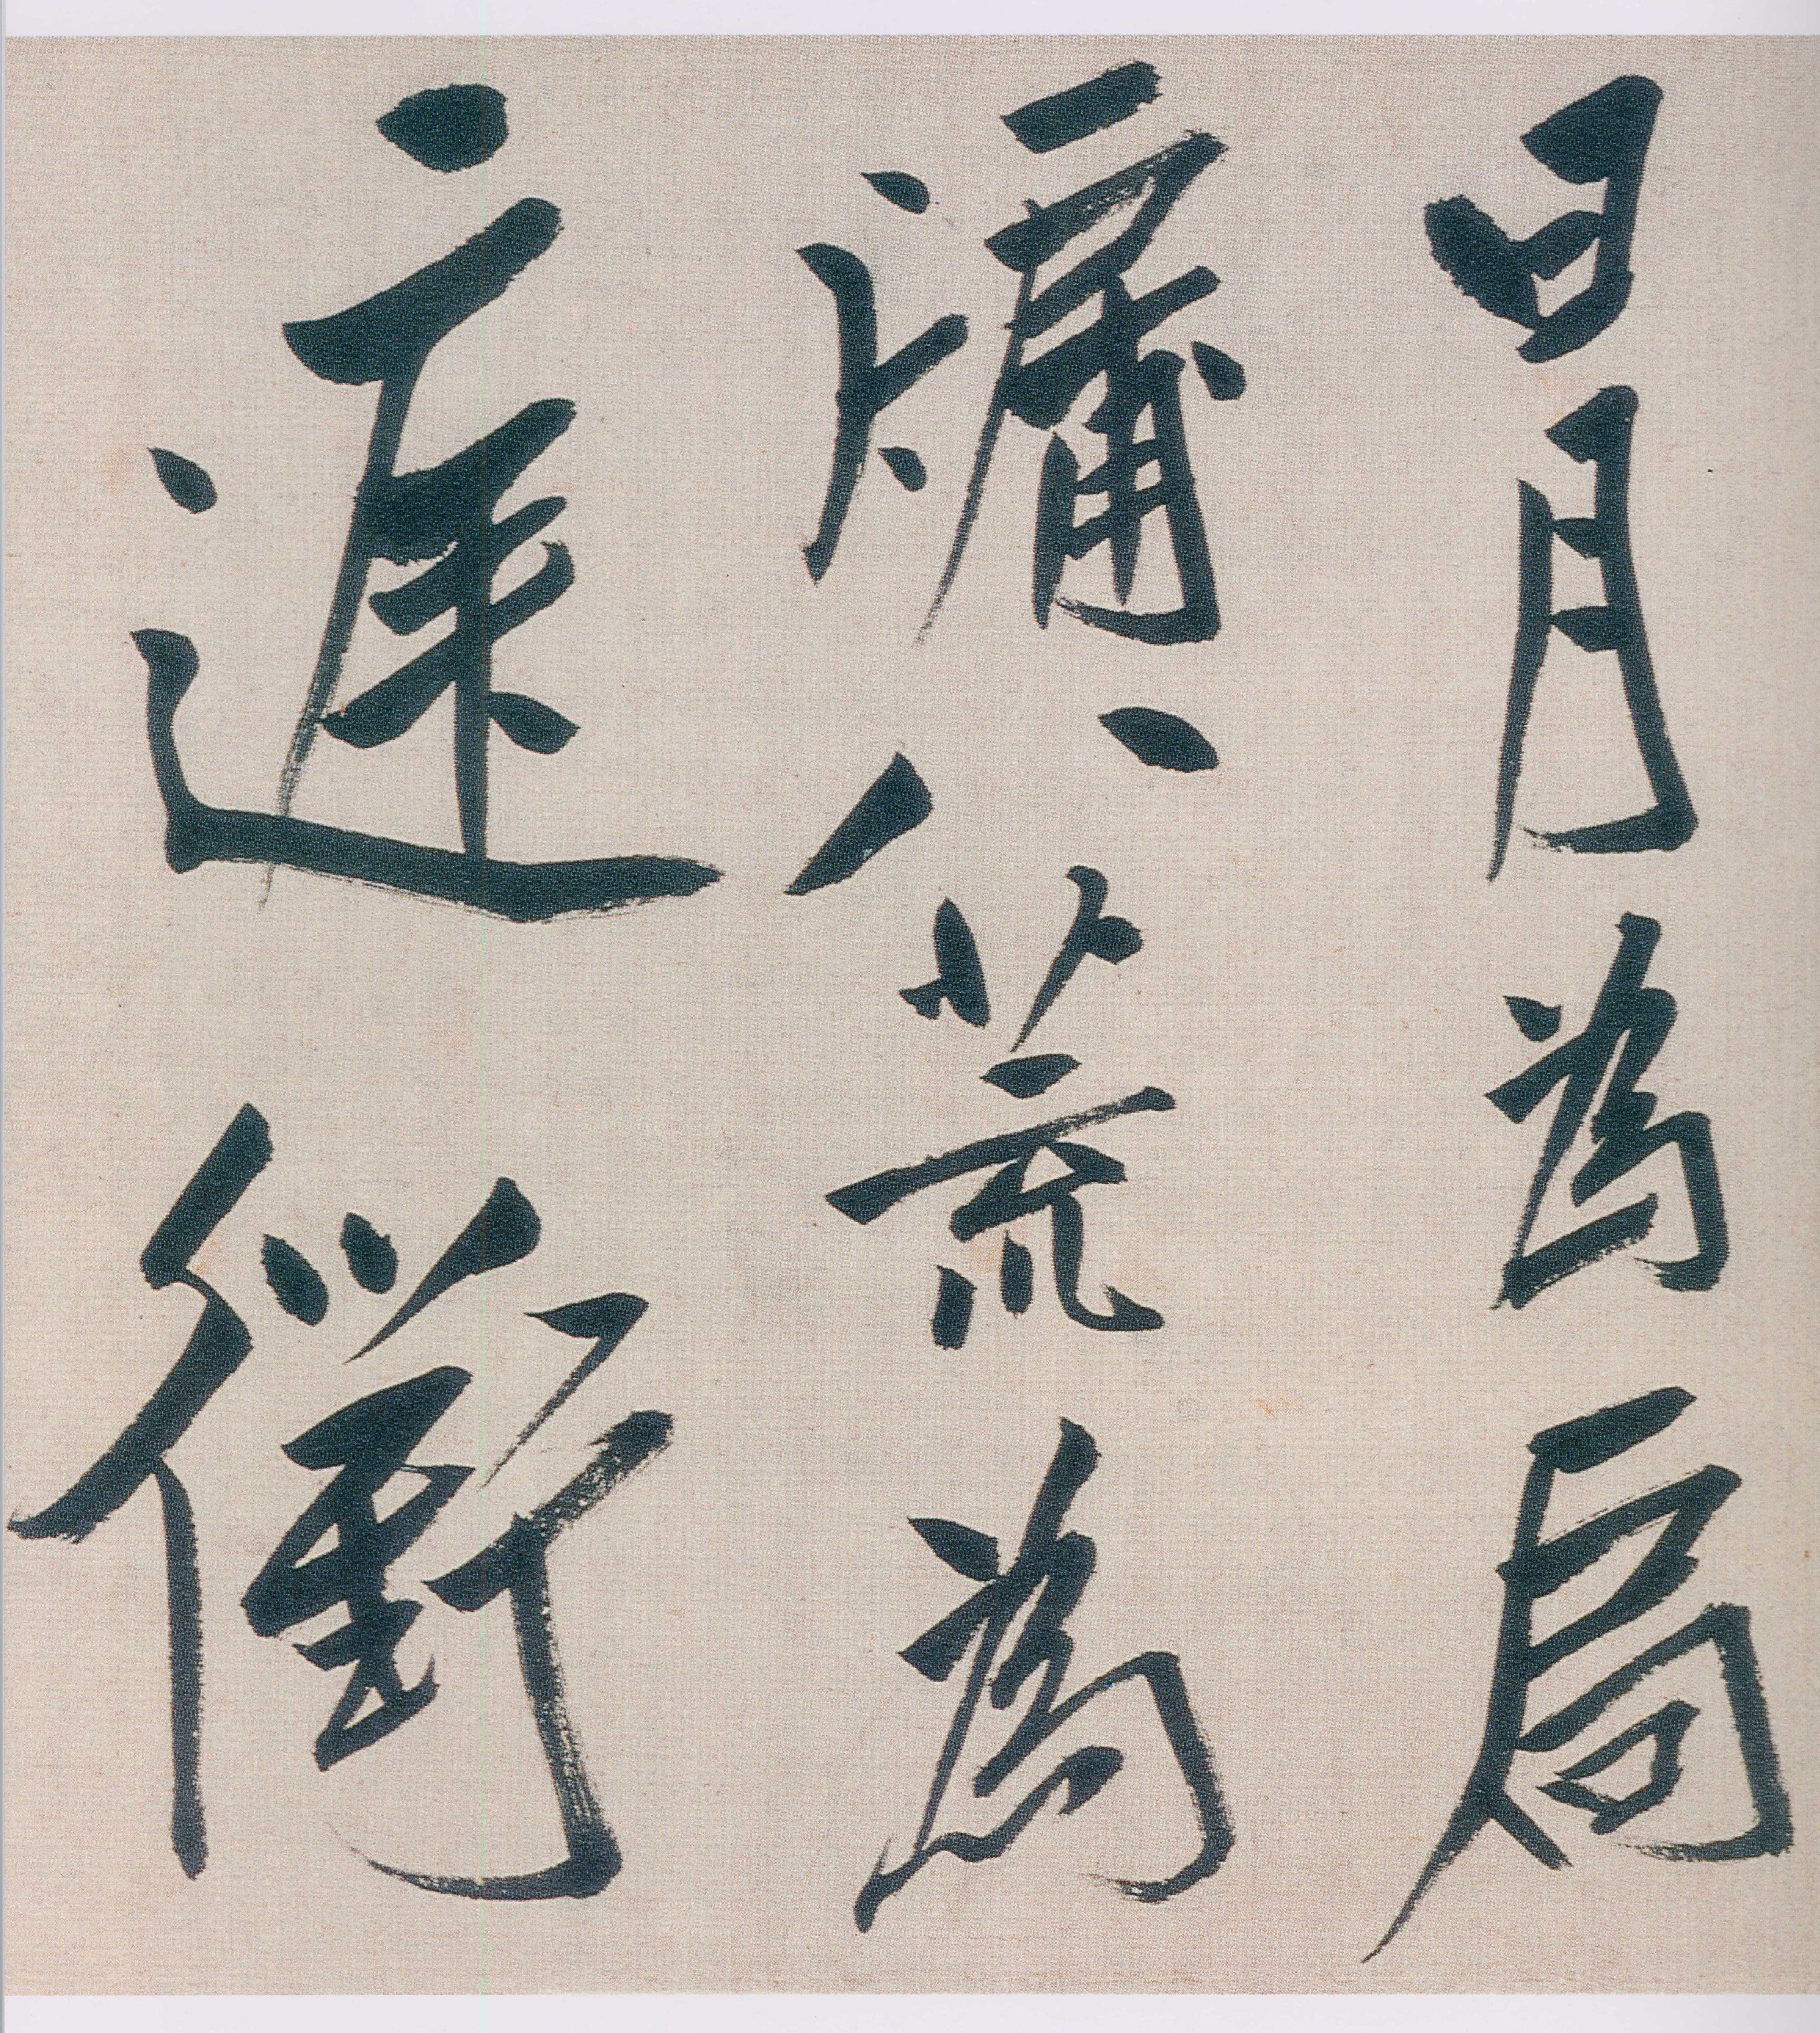 日月為扃
牖八荒為
庭衢